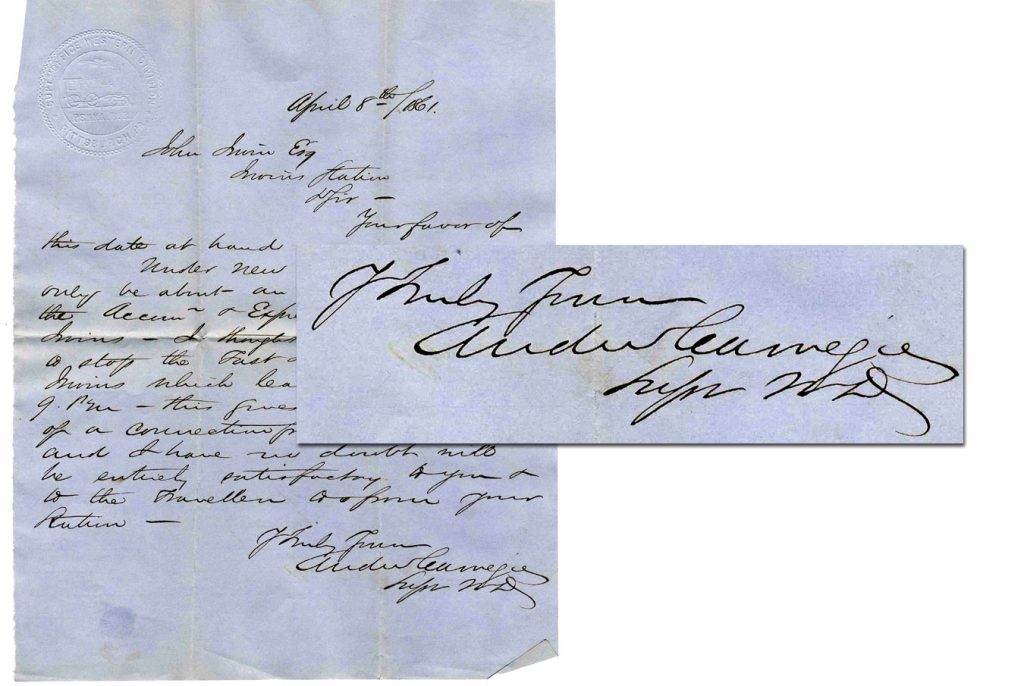 SUPTS OFFICE WESTERN DIVISION
PENNA R.R.
PITTSBURGH PA.
April 8th/1861.
John Irwin Esq
Irwins Station
D Sir —
Your favor of
this date at hand
Under new
only be about an
the Accomn & Expr
Irwins — I thought
to stop the Fast
Irwins which lea
9. P.M — this gives
of a connection fr
and I have no doubt will
be entirely satisfactory to you &
to the Travellers to & from your
Station —
Y Truly Yours
Andrew Carnegie
Supt W D
Y Truly Yours
Andrew Carnegie
Supt W D